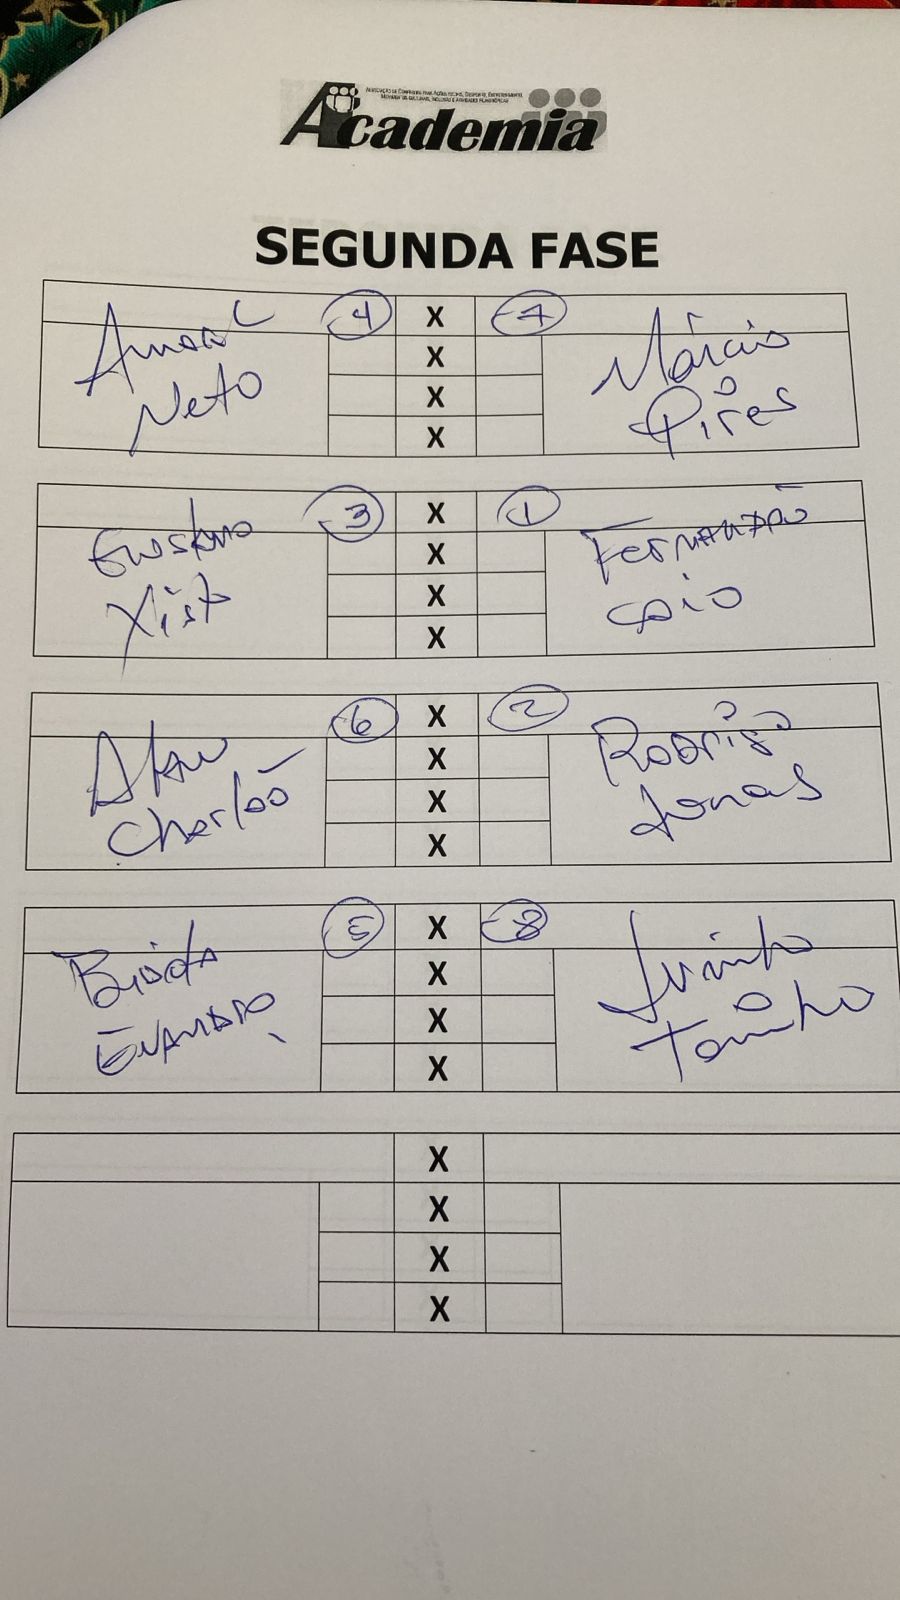 Academia
SEGUNDA FASE
Amaral 4 X 7 Márcio
Neto X Pires
X
X
Gustavo 3 X 1 Fernandão
Xisto X Caio
X
X
Alan 6 X 2 Rodrigo
Charlão X Jonas
X
X
5 X 8 Juninho
Evandro X Toninho
X
X
X
X
X
X